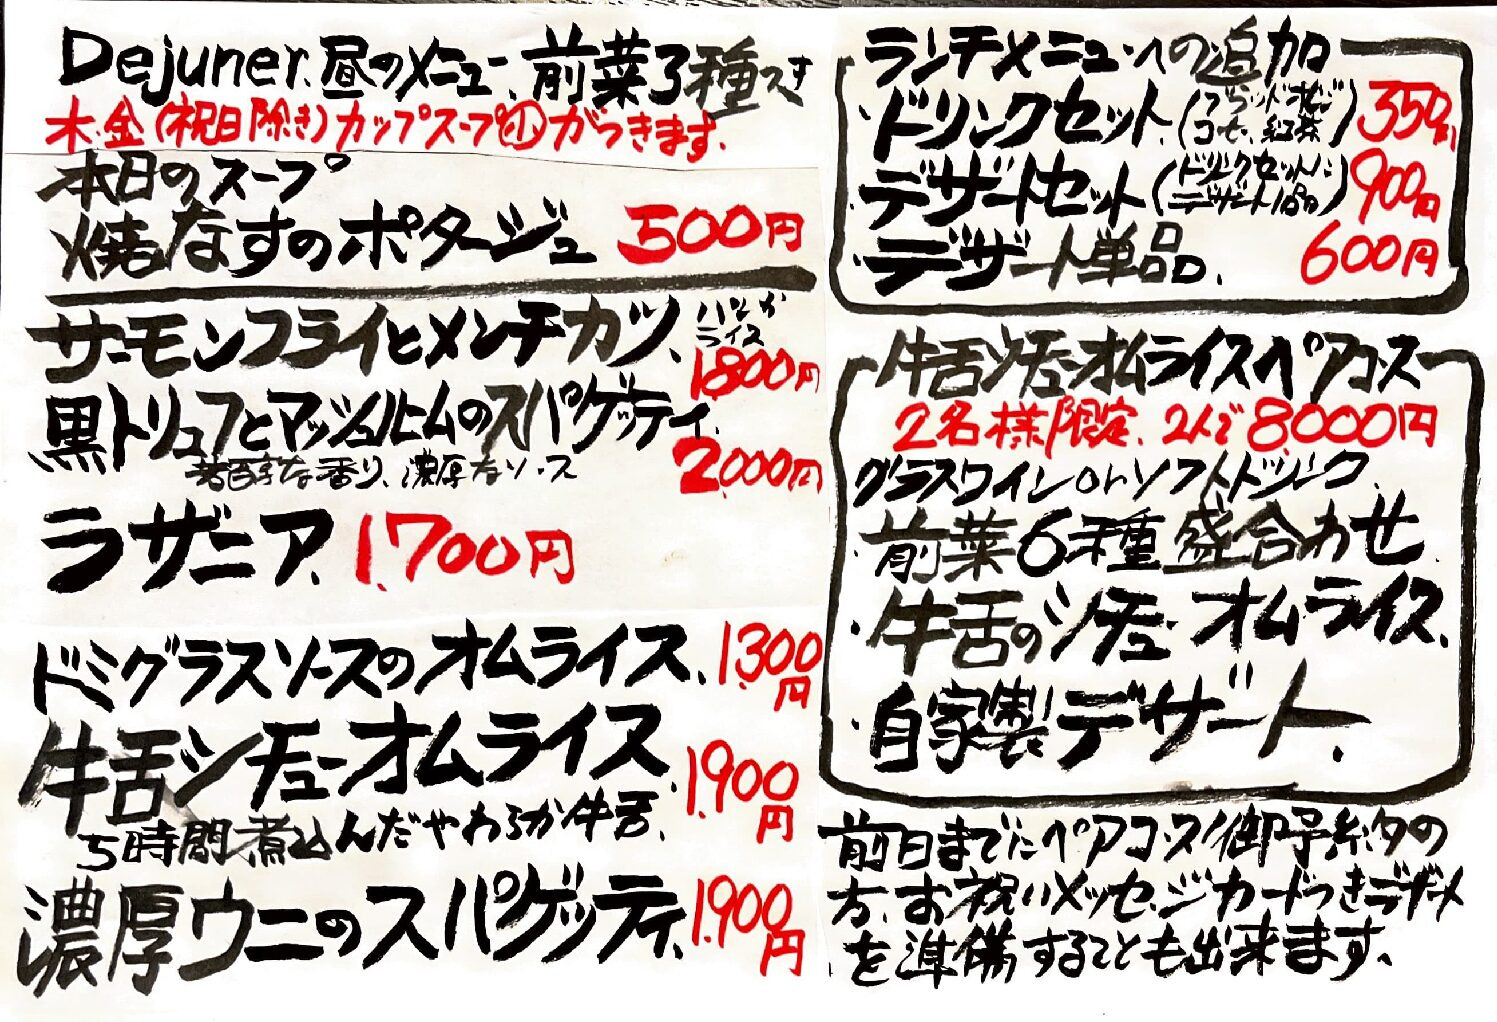 Dejuner.昼のメニュー、前菜3種つき
木.金(祝日除き)カップスープ小がつきます.
本日のスープ
焼なすのポタージュ 500円
サーモンフライとメンチカツ、パンかライス 1800円
黒トリュフとマッシュルームのスパゲッティ.
芳醇な香り、濃厚なソース 2,000円
ラザニア. 1.700円
ドミグラスソースのオムライス、1.300円
牛舌シチューオムライス. 1.900円
5時間煮込んだやわらか牛舌.
濃厚ウニのスパゲッティ、1.900円
ランチメニューへの追加
・ドリンクセット.(ブラッドオレンジ コーヒー、紅茶) 350円
・デザートセット(ドリンクセットに デザート1品) 900円
・デザート単品. 600円
牛舌シチューオムライスペアコース
2名様限定、2人で8.000円
グラスワインorソフトドリンク.
・前菜6種盛合わせ.
・牛舌のシチューオムライス.
・自家製デザート.
前日までにペアコース御予約の
方、お祝いメッセージカードつきデザート
を準備することも出来ます、